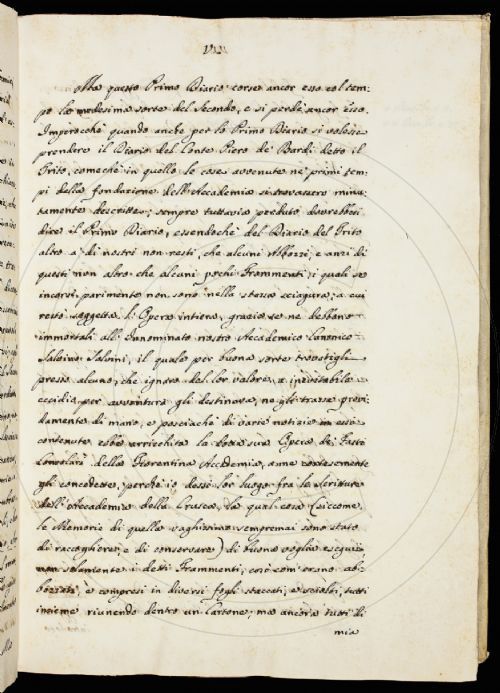 VII.
Ma questo Primo Diario corse ancor esso col tem-
po la medesima sorte del Secondo, e si perdè ancor esso.
Imperocchè quando anche per lo Primo Diario si volesse
prendere il Diario del Conte Piero de' Bardi detto il
Trito, comechè in quello le cose avvenute ne' primi tem-
pi della fondazione dell'Accademia si trovassero minu-
tamente descritte; sempre tuttavia perduto dovrebbesi
dire il Primo Diario, essendochè del Diario del Trito
altro a' dì nostri non resti, che alcuni Abbozzi, e anzi di
questi non altro che alcuni pochi Frammenti; i quali se
incorsi parimente non sono nella stessa sciagura, a cui
restò soggetta l'Opera intiera, grazie se ne debbono
immortali all'Innominato nostro Accademico Canonico
Salvino Salvini, il quale per buona sorte trovatigli
presso alcuno, che ignaro del lor valore, a inevitabile
eccidio per avventura gli destinava, ne gli trasse provi-
damente di mano, e posciachè di varie notizie in essi
contenute ebbe arricchita la dotta sua Opera de' Fasti
Consolari della Fiorentina Accademia, a me cortesemente
gli concedette, perchè io dessi lor luogo fra le Scritture
dell'Accademia della Crusca, la qual cosa (siccome
le Memorie di quella vaghissimo sempremai sono stato
di raccogliere, e di conservare) di buona voglia eseguii,
non solamente i detti Frammenti, così com'erano ab-
bozzati, e compresi in diversi fogli staccati, e sciolti, tutti
insieme riunendo dentro un Cartone; ma ancora tutti di
mia